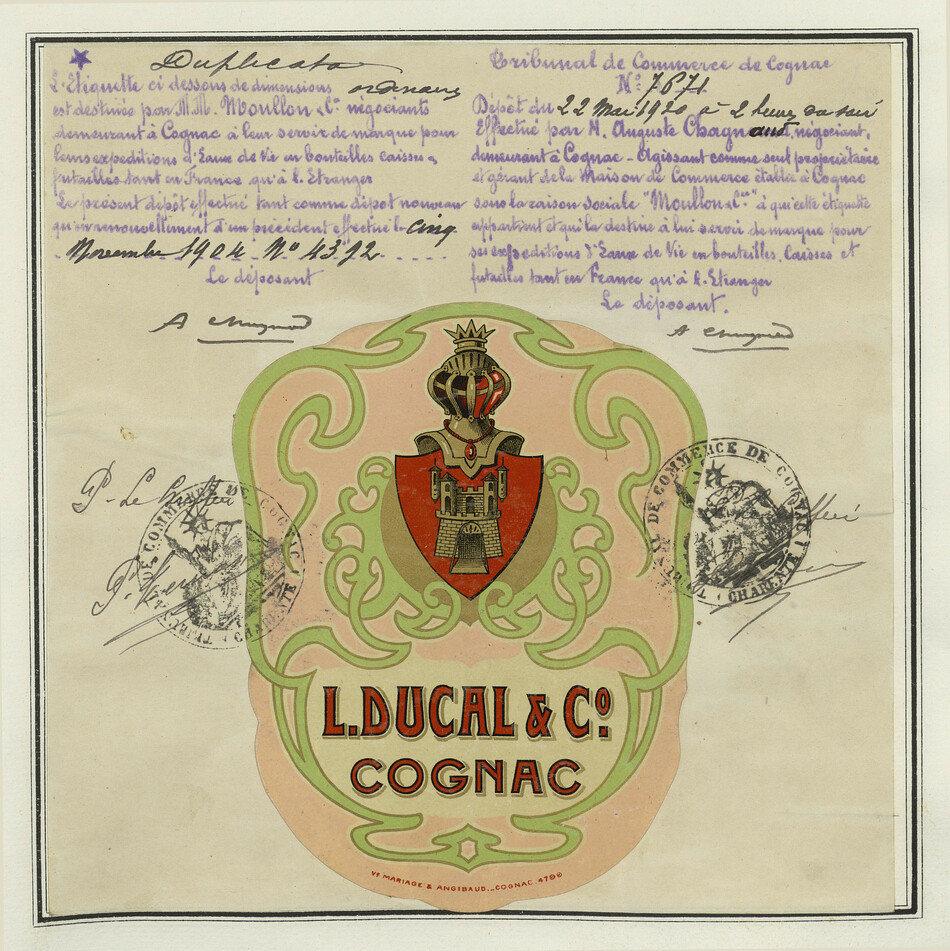 Duplicata
L'Etiquette ci dessous de dimensions ordinaires
est destinée par M.M. Moullon & Cie négociants
demeurant à Cognac à leur servir de marque pour
leurs expeditions d'Eaux de Vie en bouteilles caisses &
futailles tant en France qu'à l'Etranger
Le présent dépôt effectué tant comme dépôt nouveau
qu'en renouvellement d'un précédent effectué le cinq
Novembre 1904 No 4372
Le déposant
Tribunal de Commerce de Cognac
No 7671
Dépôt du 22 Mai 1920 à 2 heures du soir
Effectué par M. Auguste Chagnaud, négociant,
demeurant à Cognac - Agissant comme seul propriétaire
et gérant de la Maison de Commerce établie à Cognac
sous la raison sociale "Moullon & Cie" à qui cette étiquette
appartient et qui la destine à lui servir de marque pour
ses expeditions d'Eaux de Vie en bouteilles, Caisses et
futailles tant en France qu'à l'Etranger
Le déposant.
TRIBUNAL DE COMMERCE DE COGNAC
CHARENTE
TRIBUNAL DE COMMERCE DE COGNAC
CHARENTE
L. DUCAL & Co.
COGNAC
Vve MARIAGE & ANGIBAUD._COGNAC. 4796